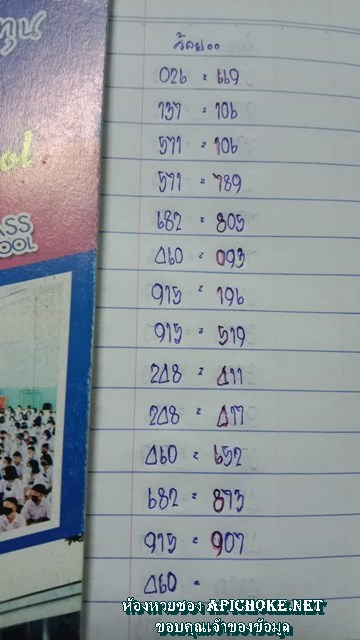 ทุน
ol
ASS
OOL
026 = 669
737 = 106
571 = 106
571 = 789
682 = 805
460 = 093
915 = 196
915 = 519
248 = 411
248 = 477
460 = 652
682 = 873
975 = 907
460 =
ห้องหวยซอง APICHOKE.NET
ขอบคุณเจ้าของข้อมูล